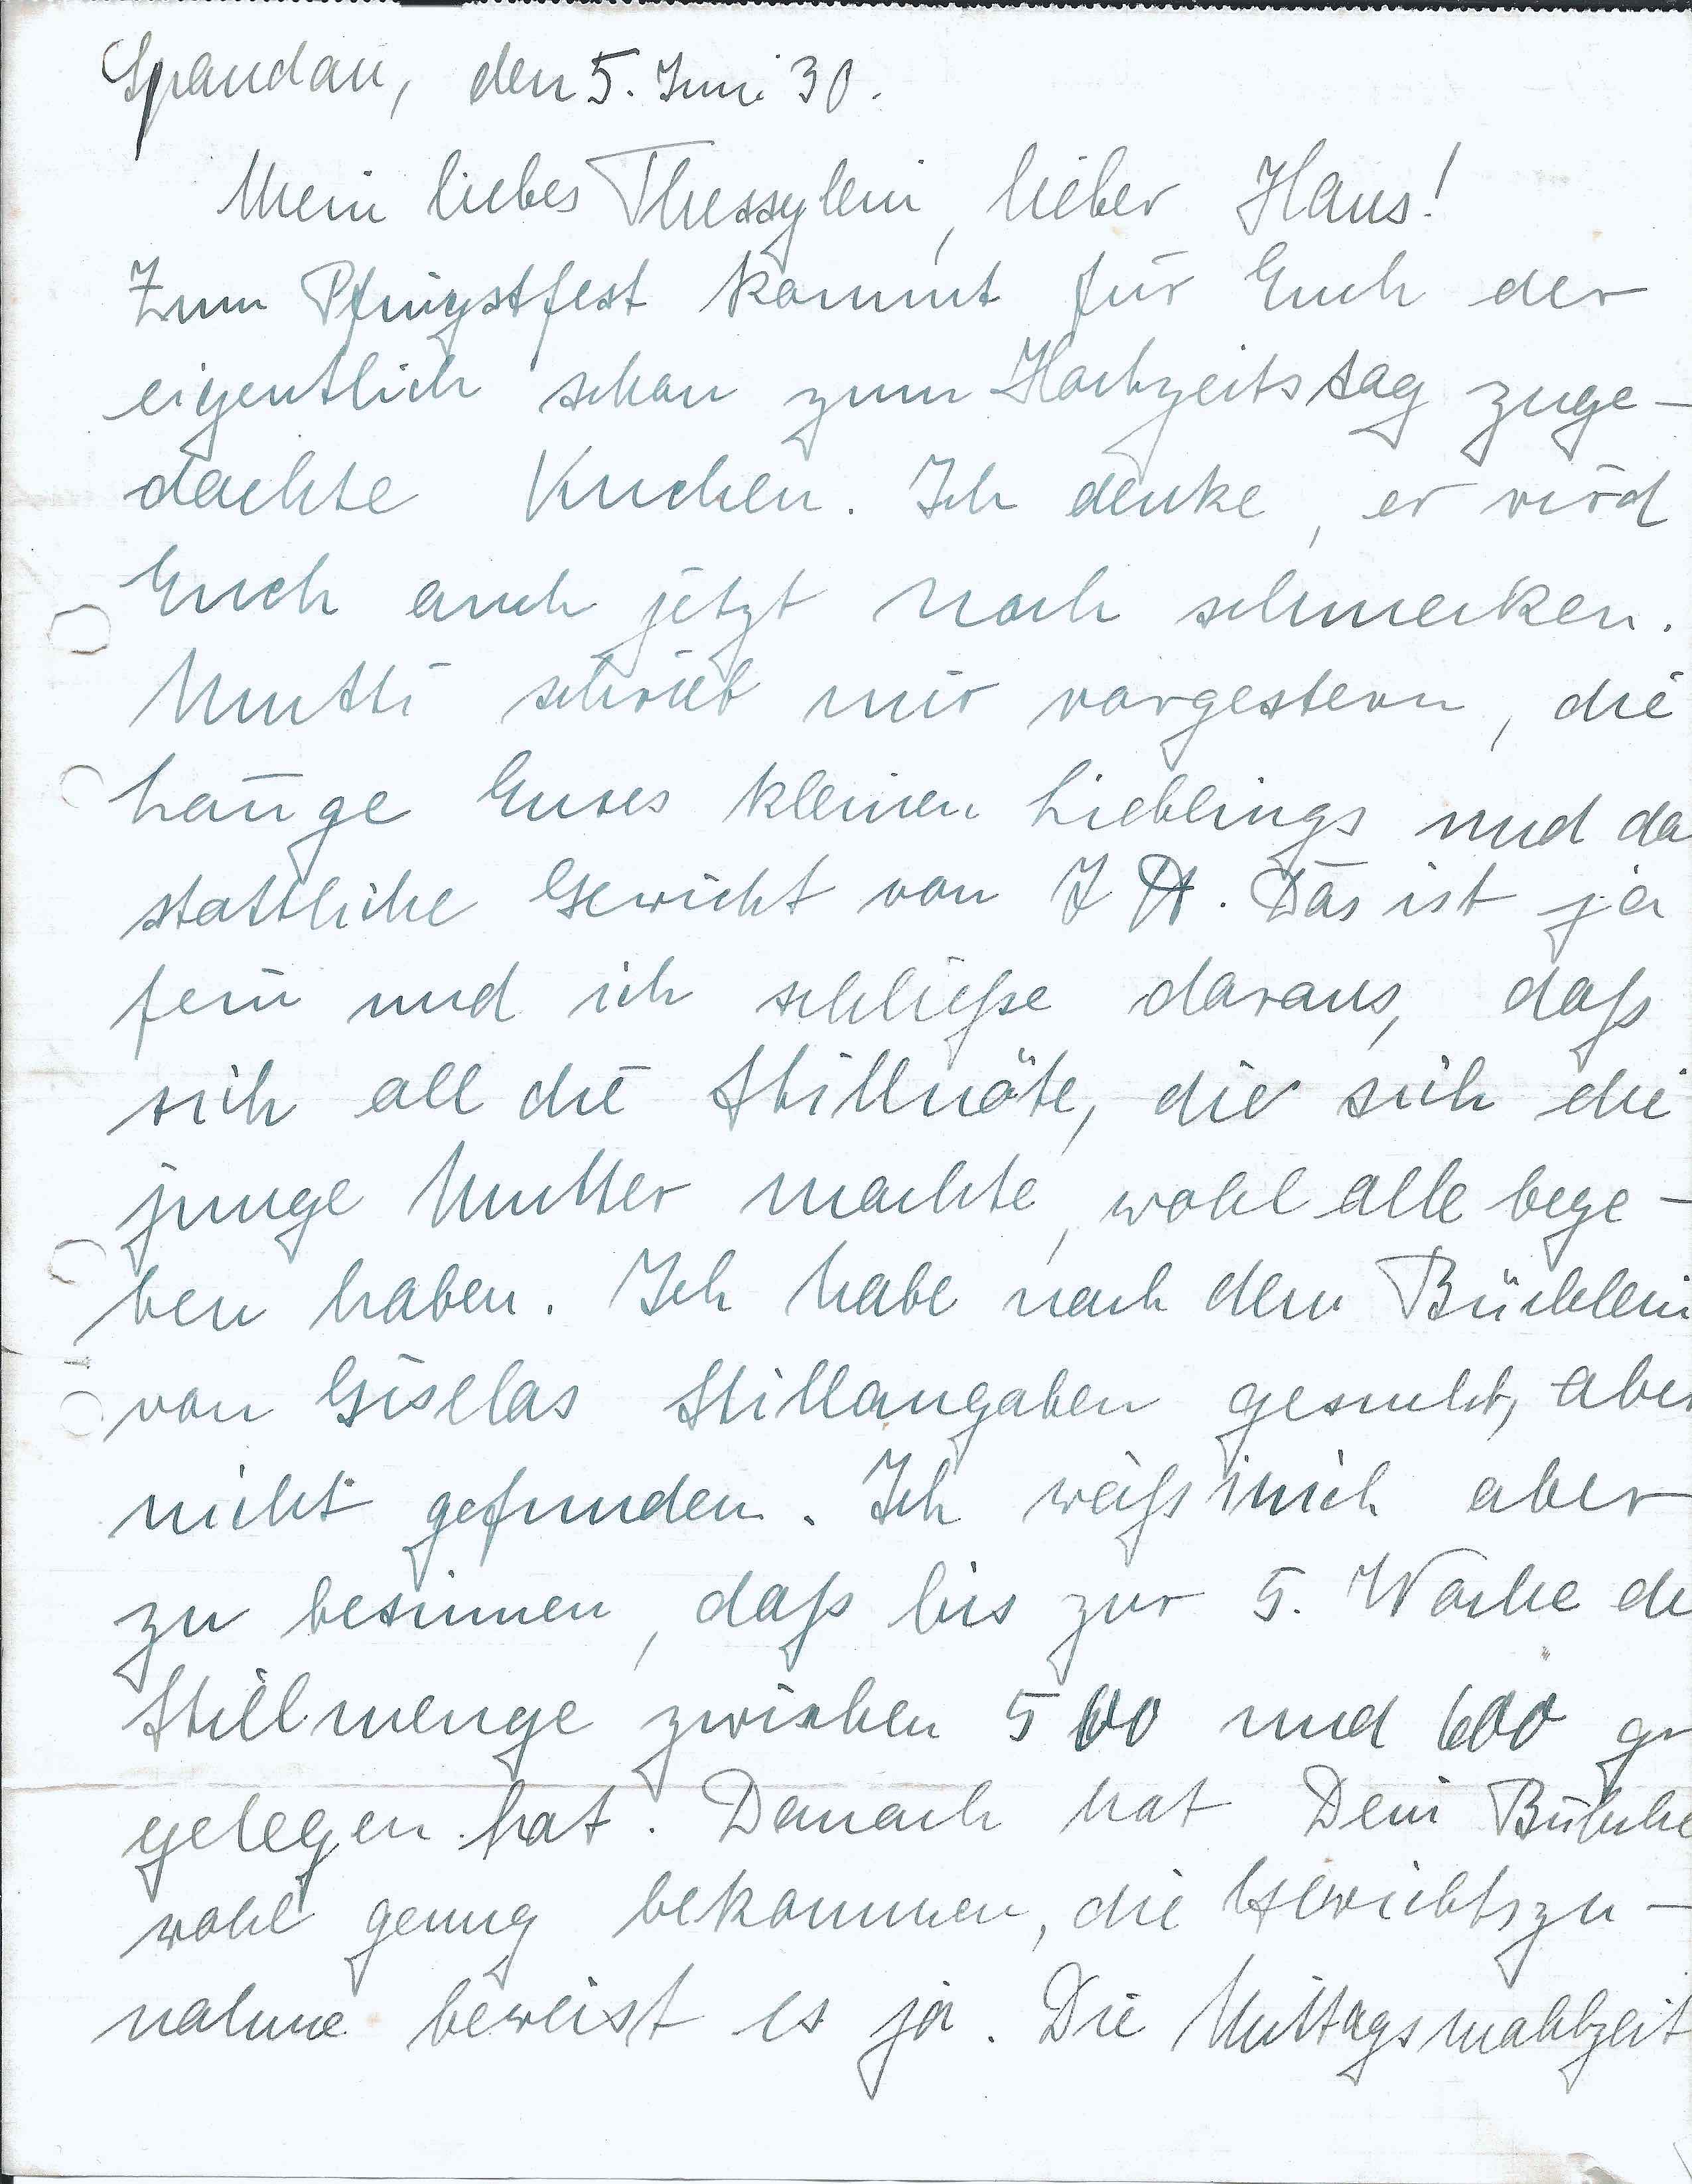 Spandau, den 5. Juni 30.
Mein liebes Thessylein, lieber Hans!
Zum Pfingstfest kommt für Euch der
eigentlich schon zum Hochzeitstag zuge-
dachte Kuchen. Ich denke, er wird
Euch auch jetzt noch schmecken.
Mutti schrieb mir vorgestern, die
Länge Eures kleinen Lieblings und da
stattliche Gewicht von 7 ℔. Das ist ja
fein und ich schließe daraus, daß
sich all die Stillnöte, die sich die
junge Mutter machte, wohl alle bege-
ben haben. Ich habe nach dem Büchlein
von Giselas Stillangaben gesucht, aber
nicht gefunden. Ich weiß mich aber
zu besinnen, daß bis zur 5. Woche de
Stillmenge zwischen 500 und 600 gr
gelegen hat. Danach hat Dein Bübche
wohl genug bekommen, die Gewichtszu-
nahme beweist es ja. Die Mittagsmahlzeit